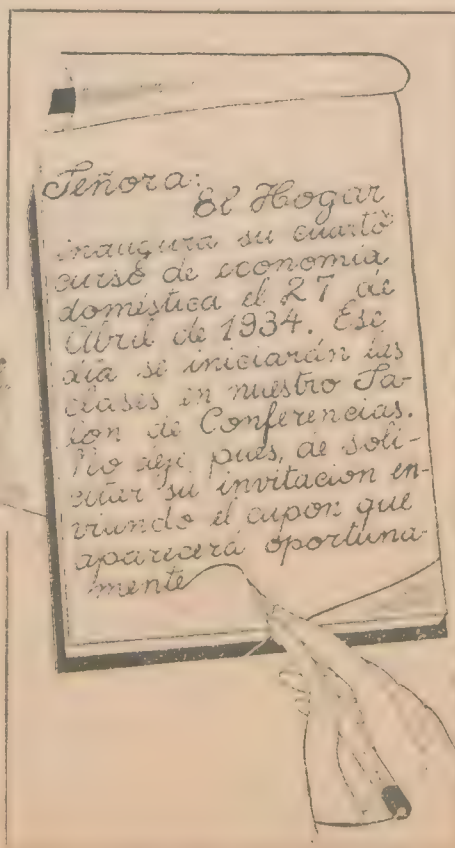 Señora:
El Hogar
inaugura su cuarto
curso de economía
doméstica el 27 de
Abril de 1934. Ese
día se iniciarán las
clases en nuestro Sa-
lón de Conferencias.
No deje, pues, de soli-
citar su invitación en-
viando el cupón que
aparecerá oportuna-
mente